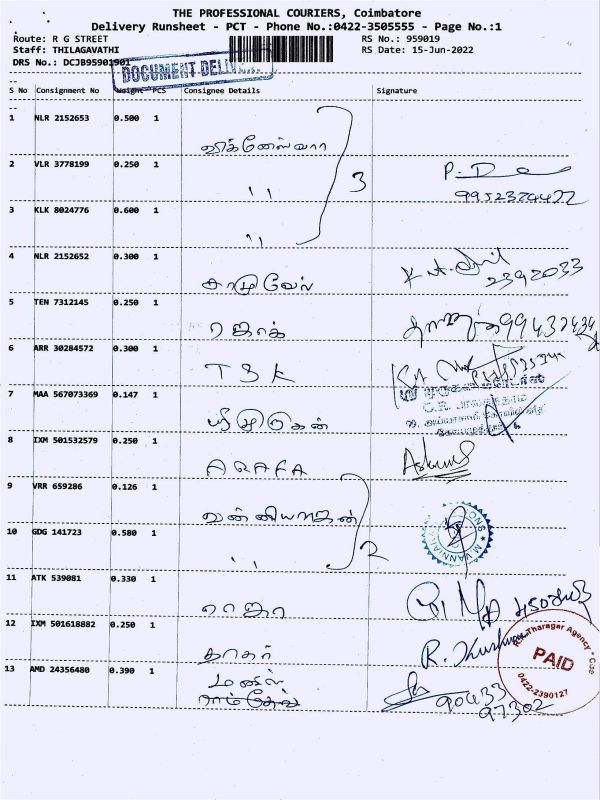 THE PROFESSIONAL COURIERS, Coimbatore
Delivery Runsheet - PCT - Phone No.:0422-3505555 - Page No.:1
Route: R G STREET
RS No.: 959019
Staff: THILAGAVATHI
RS Date: 15-Jun-2022
DRS No.: DCJB95901901
DOCUMENT
S No Consignment No Weight PCS Consignee Details Signature
1 NLR 2152653 0.500 1
விக்னேஸ்வரா
2 VLR 3778199 0.250 1
"
3
9952374477
3 KLK 8024776 0.600 1
"
4 NLR 2152652 0.300 1
சாமுவேல்
2392033
5 TEN 7312145 0.250 1
6 ARR 30284572 0.300 1
TSK
7 MAA 567073369 0.147 1
ஸ்ரீமுருகன்
8 IXM 501532579 0.250 1
ARAFA
9 VRR 659286 0.126 1
வன்னியராஜன்
10 GDG 141723 0.580 1
"
2
11 ATK 539081 0.330 1
ராஜா
12 IXM 501618882 0.250 1
Tharagar Agency
PAID
0422-2390127
13 AMD 24356480 0.390 1
ராம்தேவ்
90433
97302